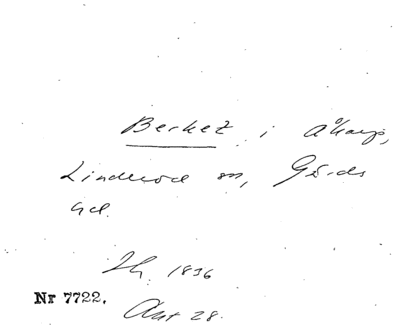 Berket i Åkarp,
Linderöd sn, Gärds
hd.
Lh. 1836
Nr 7722. Akt 28.